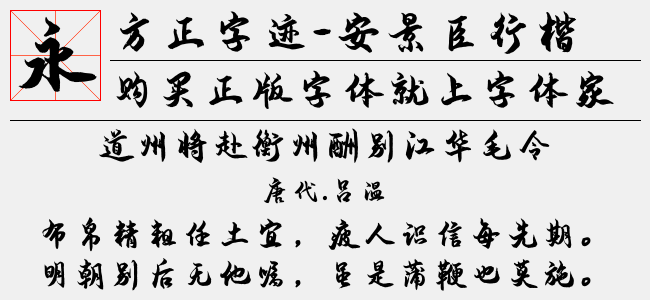 永
方正字迹-安景臣行楷
购买正版字体就上字体家
道州将赴衡州酬别江华毛令
唐代.吕温
布帛精粗任土宜，疲人识信每先期。
明朝别后无他嘱，虽是蒲鞭也莫施。